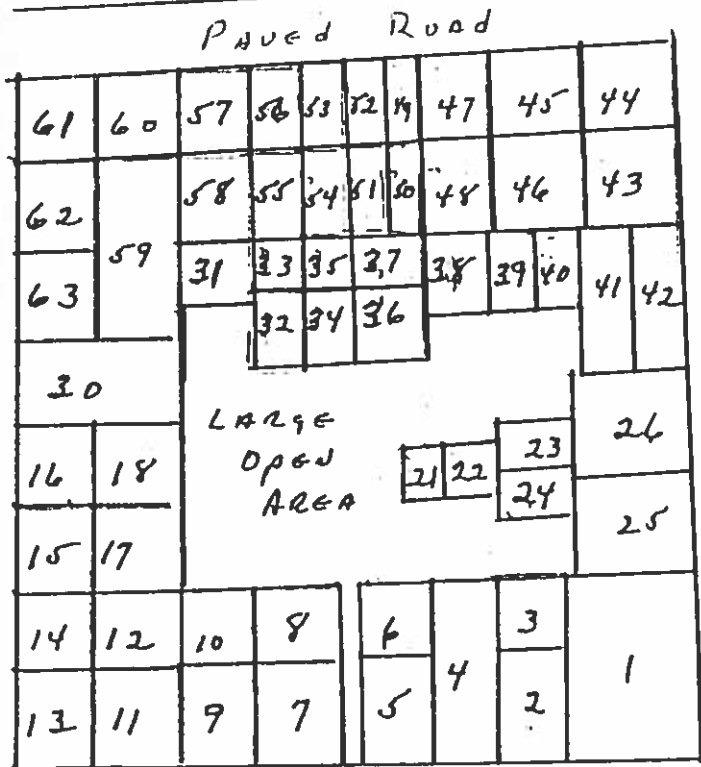 PAVEd ROAd
61 60 57 56 53 52 49 47 45 44
62 58 55 54 51 50 48 46 43
59
63 31 33 35 37 38 39 40 41 42
32 34 36
30
LARGE
OPEN
AREA
26
23
16 18 21 22
24
15 17 25
14 12 10 8 6 3
4 1
13 11 9 7 5 2